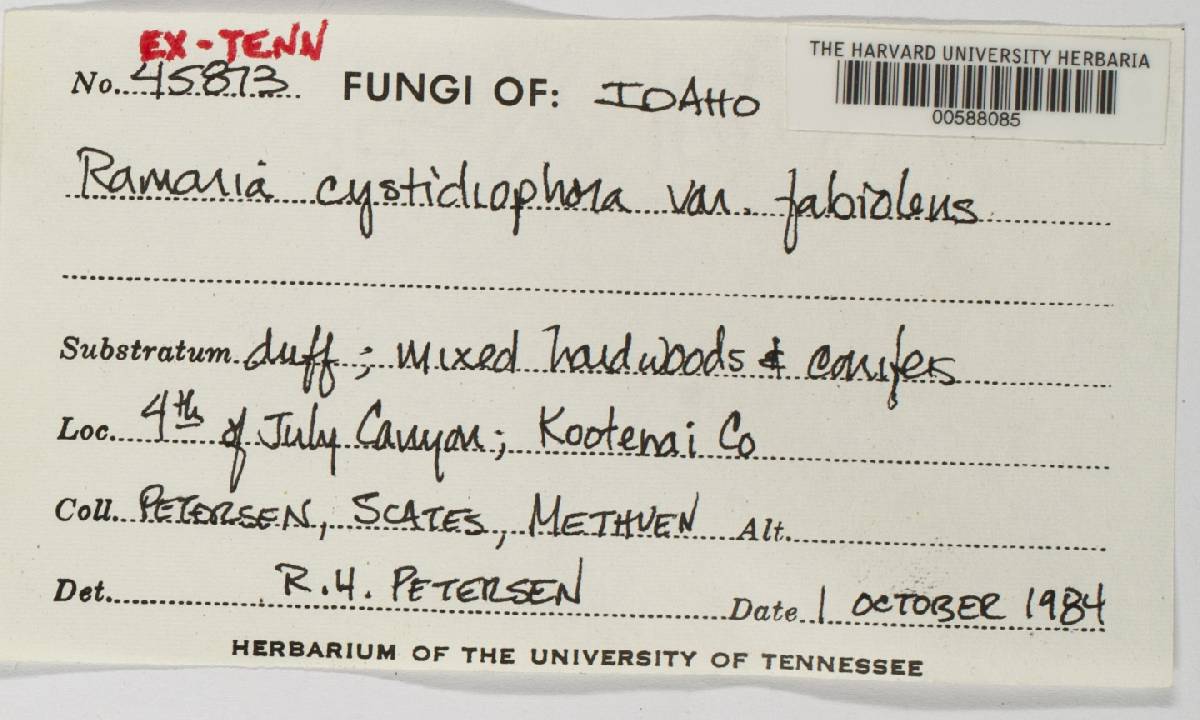 EX-TENN
No. 45873 FUNGI OF: IDAHO
THE HARVARD UNIVERSITY HERBARIA
00588085
Ramaria cystidiophora var. fabiolens
Substratum duff; mixed hardwoods & conifers
Loc. 4th of July Canyon; Kootenai Co
Coll. PETERSEN, SCATES, METHVEN Alt.
Det. R.H. PETERSEN Date 1 OCTOBER 1984
HERBARIUM OF THE UNIVERSITY OF TENNESSEE